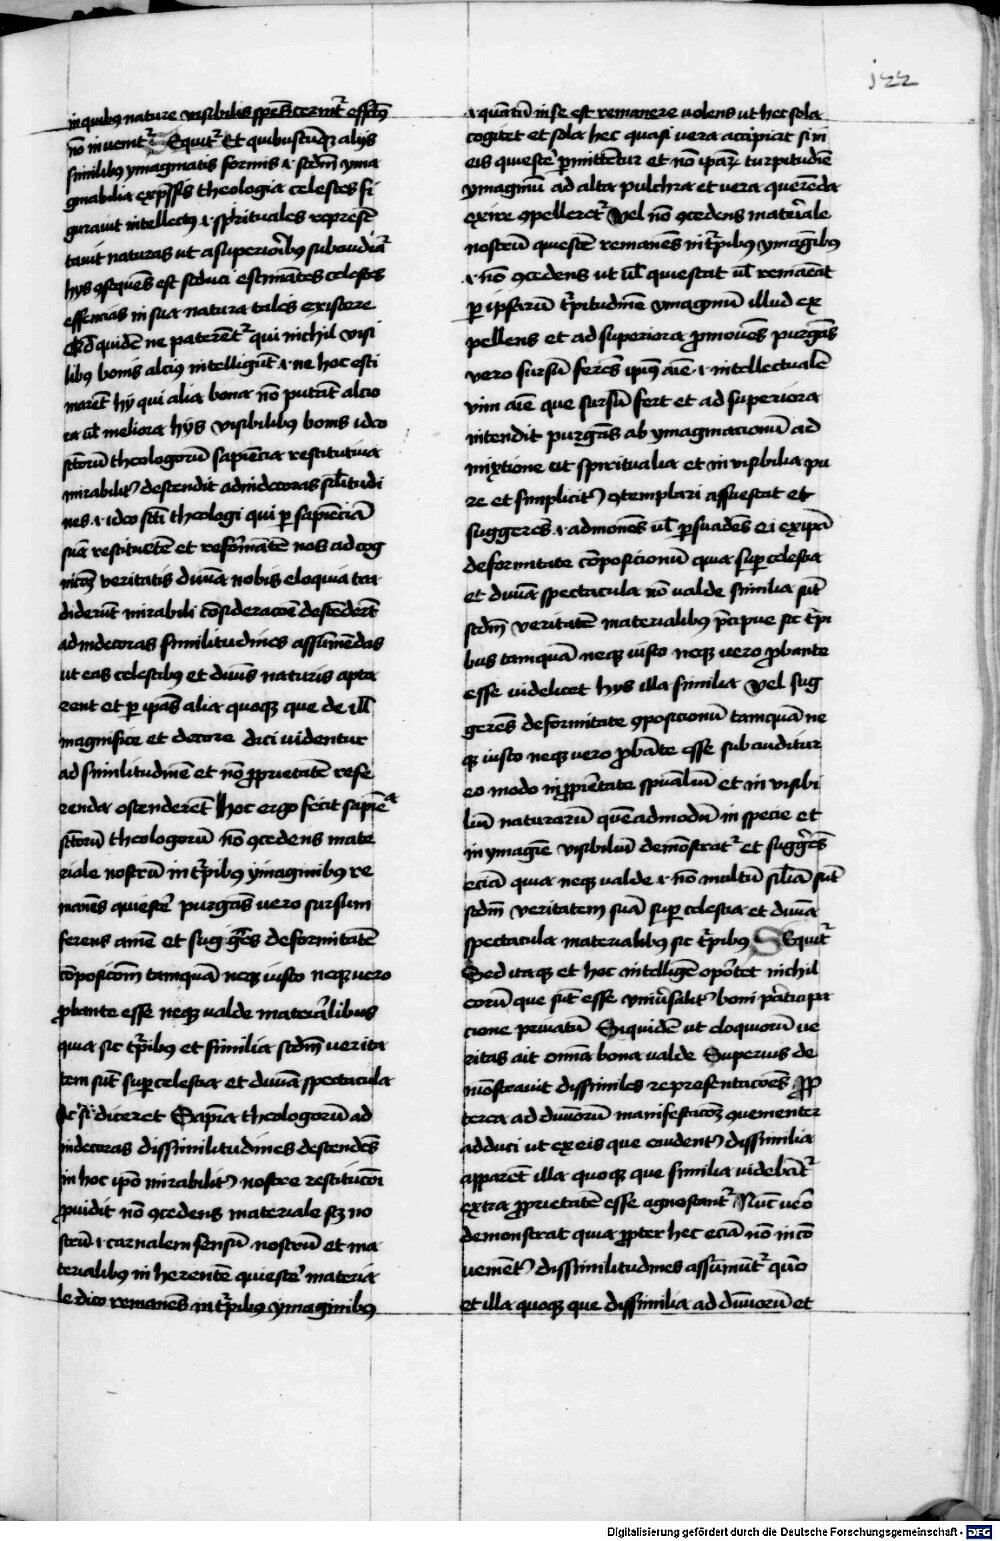 j22
in quibus nature visibilis spes cernitur effectus
non invenitur Sequitur Et quibuscumque aliis
similibus ymaginatis formis i. secundum yma
ginabilia expressis theologia celestes fi
guravit intellectus i. spirituales represen
tavit naturas ut a superioribus subauditur
hys consequens est seduci estimantes celestes
essencias in sua natura tales existere
Quod quidem ne paterentur qui nichil visi
libus bonis alcius intelligunt i. ne hoc esti
marent hij qui alia bona non putant alcio
ra vel meliora hijs visibilibus bonis ideo
sanctorum theologorum sapiencia restitutiva
mirabiliter descendit ad indecoras similitudi
nes i. ideo sancti theologi qui per sapienciam
suam restituentem et reformantem nos ad cog
nicionem veritatis divina nobis eloquia tra
diderunt mirabili consideracione descenderunt
ad indecoras similitudines assumendas
ut eas celestibus et divinis naturis apta
rent et per ipsas alia quoque que de illis
magnifice et decore dici videntur
ad similitudinem et non proprietatem refe
renda ostenderent Hoc ergo fecit sapiencia
sanctorum theologorum non concedens mate
riale nostrum in turpibus ymaginibus re
manens quiescere purgans vero sursum
ferens animem et suggerens deformitatem
composicionum tamquam neque iusto neque vero
probante esse neque valde materialibus
quia sic turpibus et similia secundum verita
tem sunt super celestia et divina spectacula
Ac si diceret Sapiencia theologorum ad
indecoras dissimilitudines descendens
in hoc ipso mirabiliter nostre restitucioni
providit non concedens materiale scilicet no
strum i. carnalem sensum nostrum et ma
terialibus inherentem quiescere materia
le dico remanens in turpibus ymaginibus
i. quantum in se est remanere volens ut hec sola
cogitet et sola hec quasi vera accipiat si in
eis quiescere permitteretur et non ipsarum turpitudine
ymaginum ad alta pulchra et vera querenda
exire compelleretur Vel non concedens materiale
nostrum quiescere remanens in turpibus ymaginibus
i. non concedens ut vel quiescat vel remaneat
per ipsarum turpitudinem ymaginum illud ex
pellens et ad superiora promovens purgans
vero sursum ferens ipsius anime i. intellectualem
vim anime que sursum fert et ad superiora
intendit purgans ab ymaginacionum ad
mixtione ut spiritualia et invisibilia pu
re et simpliciter contemplari assuescat et
suggerens i. admonens vel persuadens ei ex ipsa
deformitate composicionum quia super celestia
et divina spectacula non valde similia sunt
secundum veritatem materialibus precipue sic turpi
bus tamquam neque iusto neque vero probante
esse videlicet hys illa similia Vel sug
gerens deformitate composicionum tamquam ne
que iusto neque vero probante esse subauditur
eo modo in proprietate spiritualium et invisibi
lium naturarum quemadmodum in specie et
in ymagine visibilium demonstratur et suggerens
eciam quia neque valde i. non multum similia sunt
secundum veritatem suam super celestia et divina
spectacula materialibus sic turpibus Sequitur
Sed itaque et hoc intelligere oportet nichil
eorum que sunt esse universaliter boni participa
cione privatum Siquidem ut eloquiorum ve
ritas ait omnia bona valde Superius de
monstravit dissimiles representaciones prop
terea ad divinorum manifestacionem convenienter
adduci ut ex eis que evidenter dissimilia
apparent illa quoque que similia videbantur
extra proprietatem esse agnoscantur Nunc vero
demonstrat quia propter hec eciam non incon
venienter dissimilitudines assumuntur quoniam
et illa quoque que dissimilia ad divinorum et
Digitalisierung gefördert durch die Deutsche Forschungsgemeinschaft - DFG